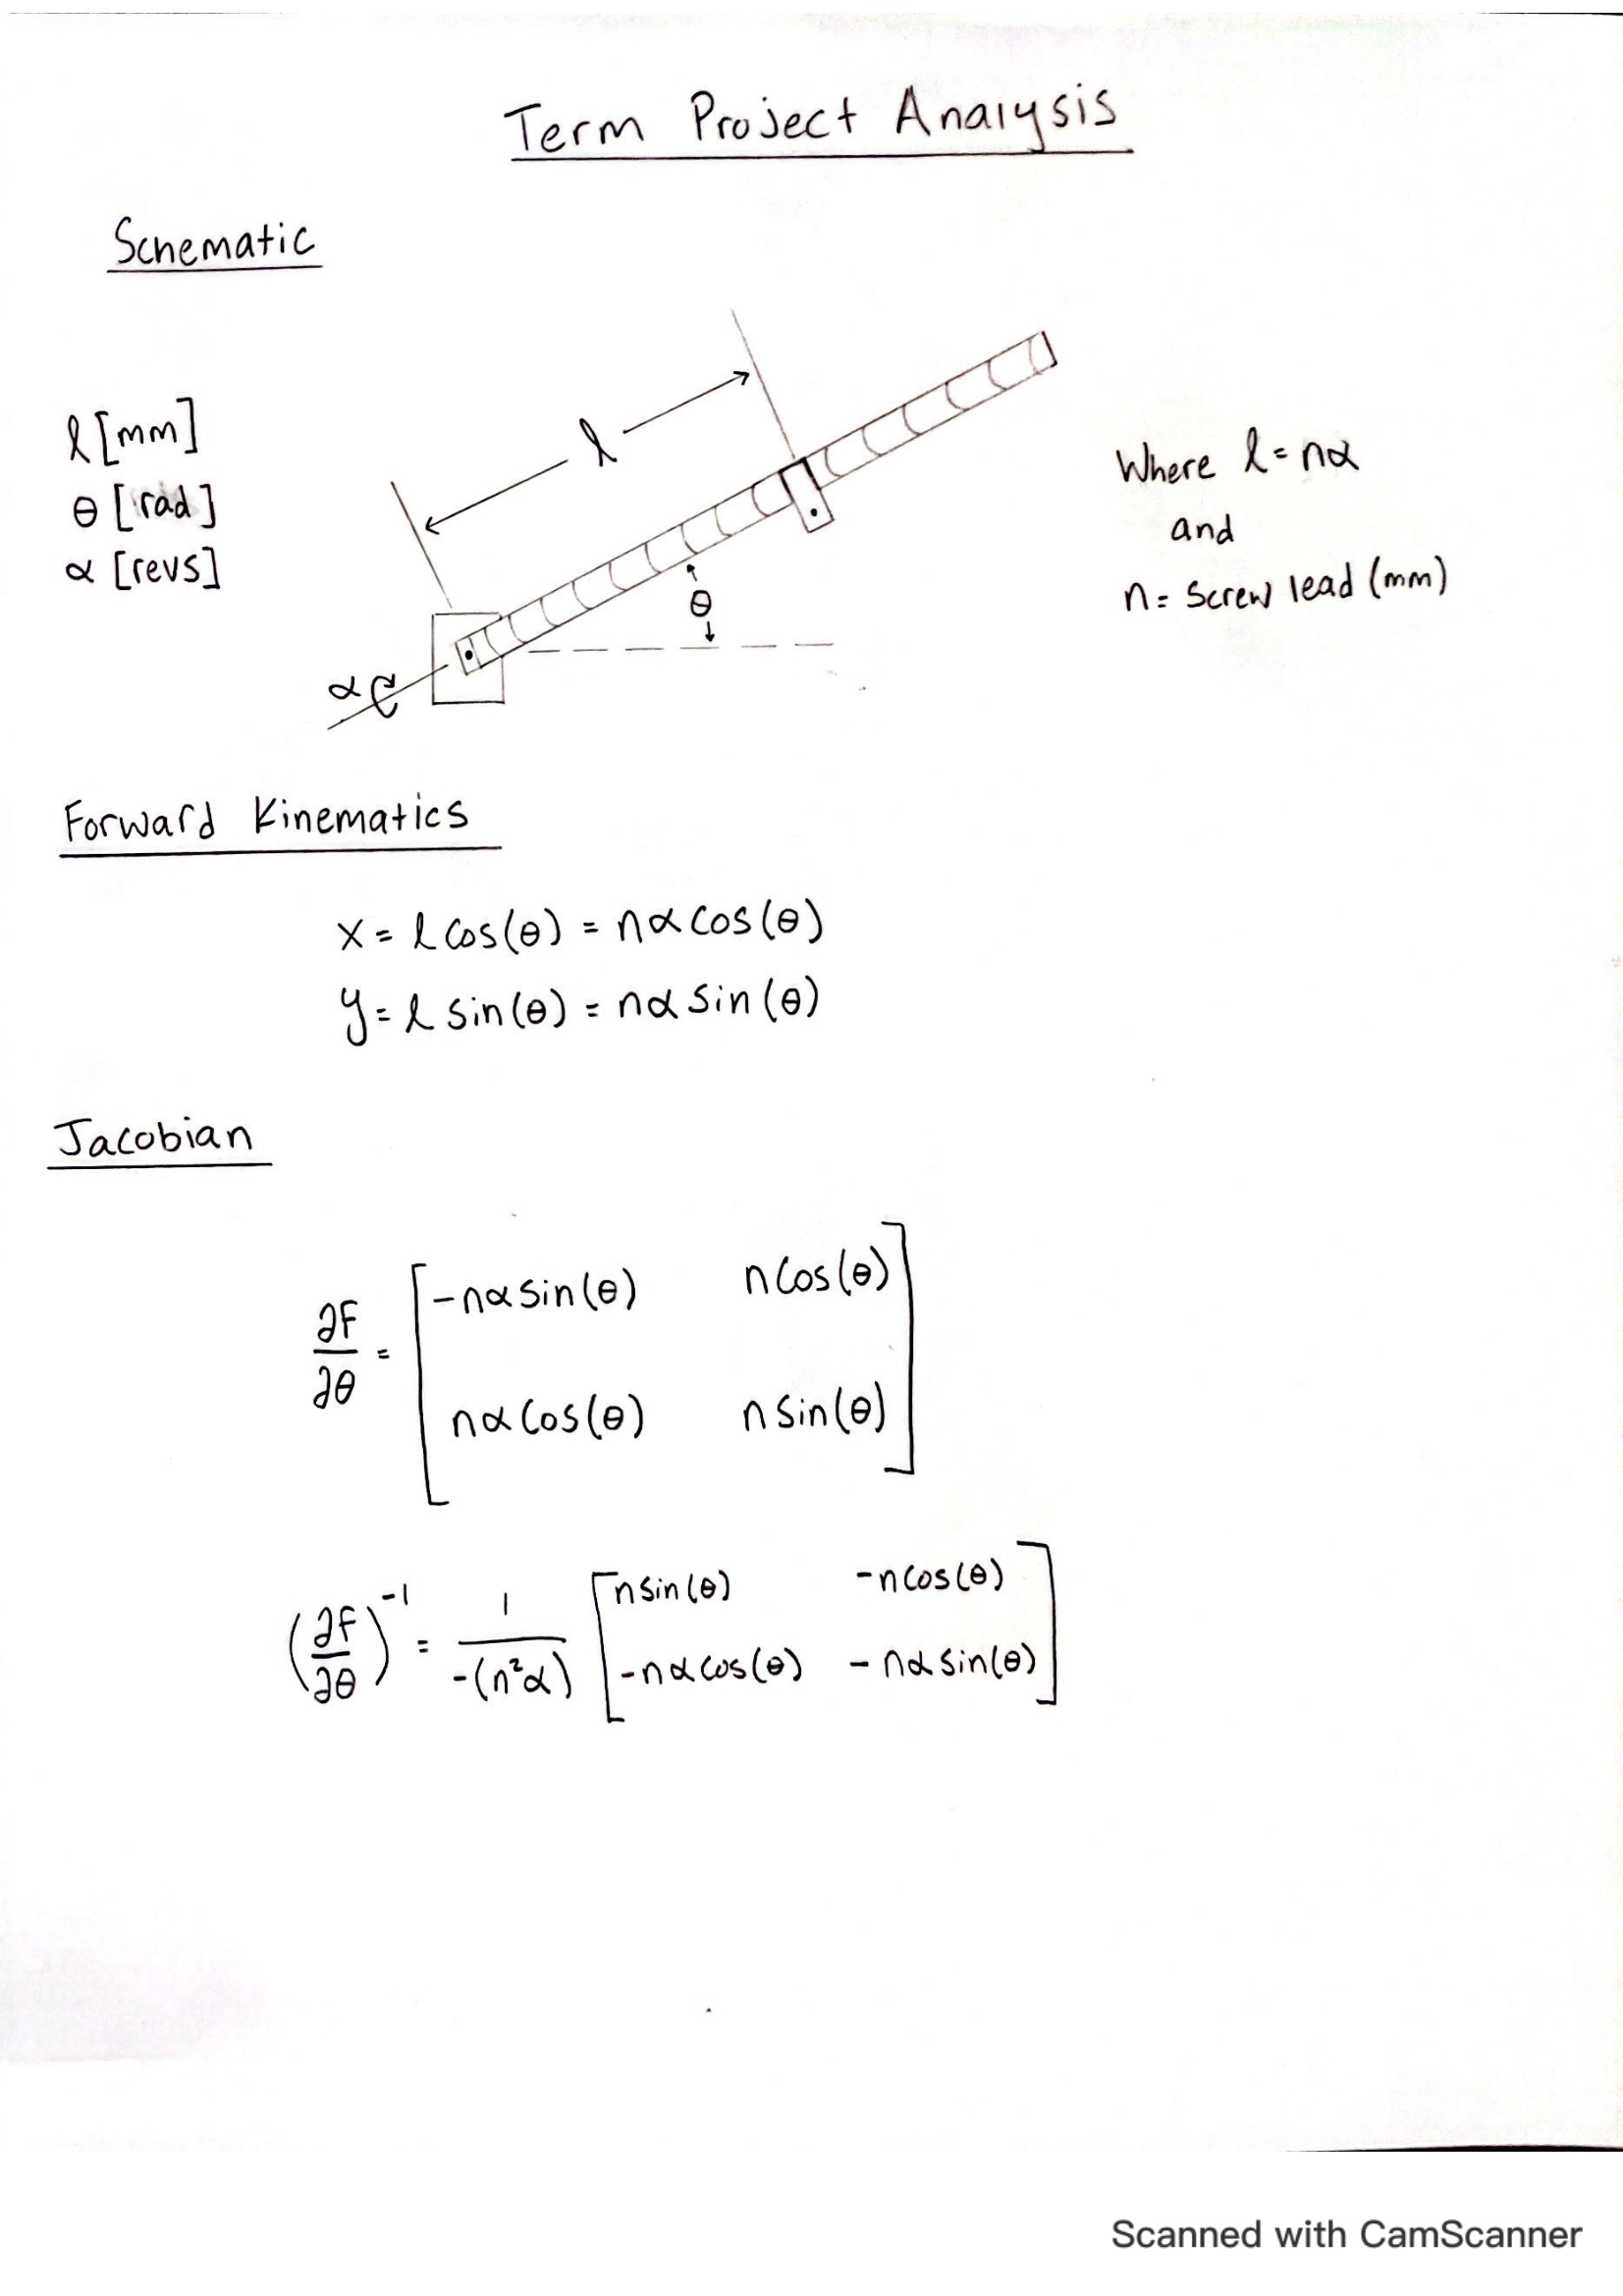 Term Project Analysis
Schematic
l [mm]
θ [rad]
α [revs]
l
θ
α
Where l = nα
and
n = Screw lead (mm)
Forward Kinematics
x = l cos(θ) = nα cos(θ)
y = l sin(θ) = nα sin(θ)
Jacobian
∂F/∂θ = [ -nα sin(θ) n cos(θ)
nα cos(θ) n sin(θ) ]
(∂F/∂θ)⁻¹ = 1/-(n²α) [ n sin(θ) -n cos(θ)
-nα cos(θ) -nα sin(θ) ]
Scanned with CamScanner